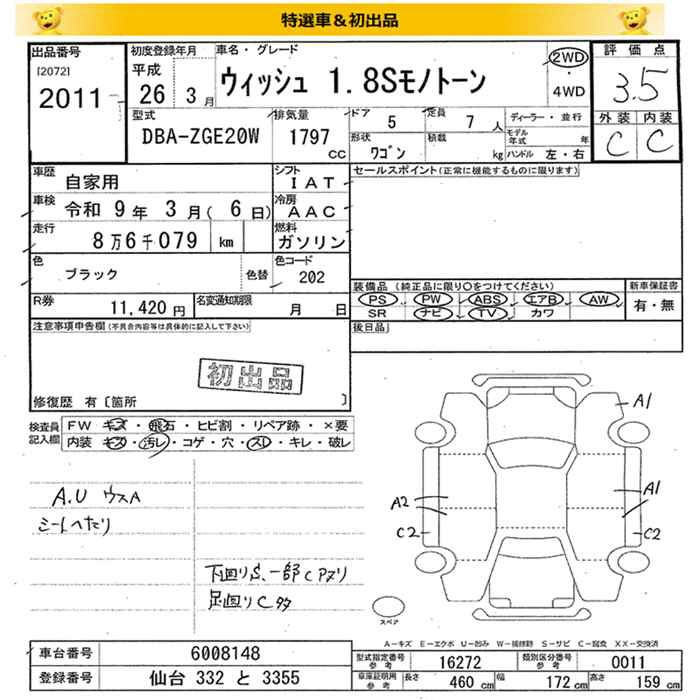 特選車＆初出品
出品番号 [2072] 2011
初度登録年月 平成 26 年 3月
車名・グレード ウィッシュ 1.8Sモノトーン
2WD ・ 4WD
評価点 3.5
外装 C 内装 C
型式 DBA-ZGE20W
排気量 1797 CC
ドア 5 定員 7 人
形状 ワゴン 積載 kg
ディーラー・並行
モデル年式 年
ハンドル 左・右
車歴 自家用
シフト IAT
セールスポイント(正常に機能するものに限ります)
車検 令和 9年 3月( 6日)
冷房 AAC
走行 8万6千079 km
燃料 ガソリン
色 ブラック 色替
色コード 202
装備品 (純正品に限り○をつけてください) 新車保証書
PS PW ABS エアB AW 有・無
SR ナビ TV カワ
R券 11,420円 名変通知期限 月 日
後日品
注意事項申告欄(不具合内容等は具体的に記入して下さい)
初出品
修復歴 有〔箇所 〕
検査員記入欄
FW キズ・飛石・ヒビ割・リペア跡・×要
内装 キズ・汚レ・コゲ・穴・スレ・キレ・破レ
A.U ウスA
シートへたり
下回りS、一部Cアヌリ
足廻りC多
A1
A2
A1
C2
C2
スペア
A-キズ E-エクボ U-凹み W-補修跡 S-サビ C-腐食 XX-交換済
車台番号 6008148
登録番号 仙台 332 と 3355
型式指定番号 参考 16272 類別区分番号 参考 0011
車庫証明用 参考 長さ 460 cm 幅 172 cm 高さ 159 cm